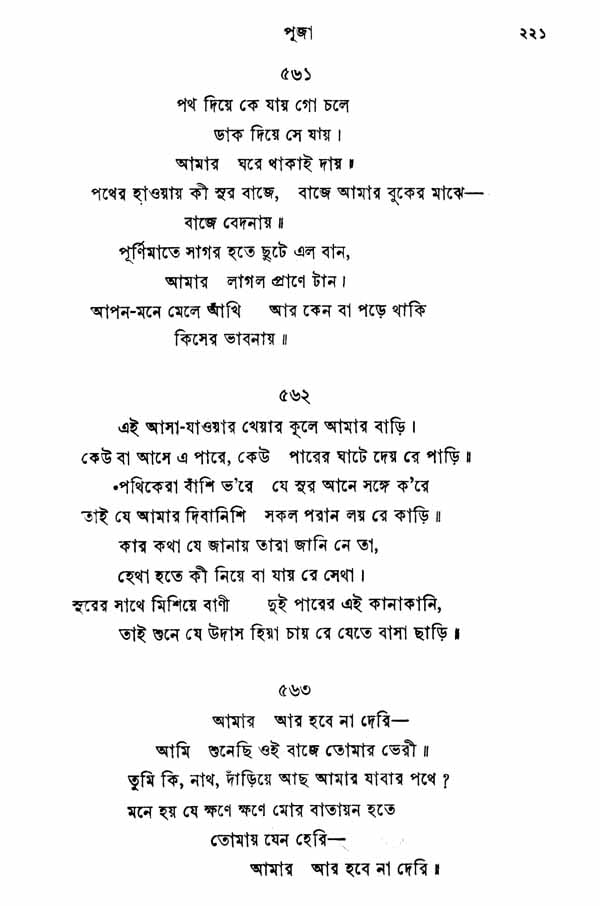 পূজা ২২১
৫৬১
পথ দিয়ে কে যায় গো চলে
ডাক দিয়ে সে যায়।
আমার ঘরে থাকাই দায়॥
পথের হাওয়ায় কী সুর বাজে, বাজে আমার বুকের মাঝে—
বাজে বেদনায়॥
পূর্ণিমাতে সাগর হতে ছুটে এল বান,
আমার লাগল প্রাণে টান।
আপন-মনে মেলে আঁখি আর কেন বা পড়ে থাকি
কিসের ভাবনায়॥
৫৬২
এই আসা-যাওয়ার খেয়ার কূলে আমার বাড়ি।
কেউ বা আসে এ পারে, কেউ পারের ঘাটে দেয় রে পাড়ি॥
পথিকেরা বাঁশি ভ'রে যে সুর আনে সঙ্গে ক'রে
তাই যে আমার দিবানিশি সকল পরান লয় রে কাড়ি॥
কার কথা যে জানায় তারা জানি নে তা,
হেথা হতে কী নিয়ে বা যায় রে সেথা।
সুরের সাথে মিশিয়ে বাণী দুই পারের এই কানাকানি,
তাই শুনে যে উদাস হিয়া চায় রে যেতে বাসা ছাড়ি॥
৫৬৩
আমার আর হবে না দেরি—
আমি শুনেছি ওই বাজে তোমার ভেরী॥
তুমি কি, নাথ, দাঁড়িয়ে আছ আমার যাবার পথে?
মনে হয় যে ক্ষণে ক্ষণে মোর বাতায়ন হতে
তোমায় যেন হেরি—
আমার আর হবে না দেরি॥